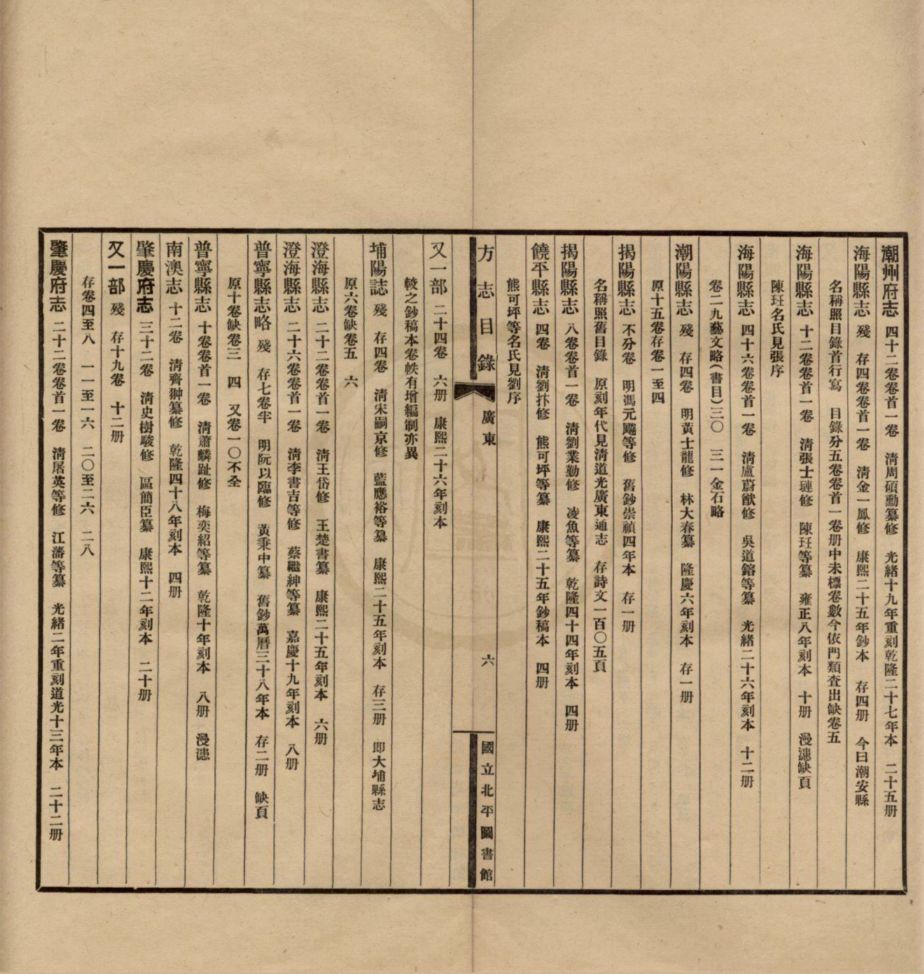 潮州府志 四十二卷卷首一卷 清周碩勳纂修 光緒十九年重刻乾隆二十七年本 二十五册
海陽縣志 殘 存四卷卷首一卷 清金一鳳修 康熙二十五年鈔本 存四册 今曰潮安縣
名稱照目錄首行寫 目錄分五卷卷首一卷册中未標卷數今依門類查出缺卷五
海陽縣志 十二卷卷首一卷 清張士璉修 陳玨等纂 雍正八年刻本 十册 漫漶缺頁
陳玨名氏見張序
海陽縣志 四十六卷卷首一卷 清盧蔚猷修 吳道鎔等纂 光緒二十六年刻本 十二册
卷二九藝文略(書目)三〇 三一金石略
潮陽縣志 殘 存四卷 明黃士龍修 林大春纂 隆慶六年刻本 存一册
原十五卷存卷一至四
揭陽縣志 不分卷 明馮元飈等修 舊鈔崇禎四年本 存一册
名稱照舊目錄 原刻年代見清道光廣東通志 存詩文一百〇五頁
揭陽縣志 八卷卷首一卷 清劉業勤修 凌魚等纂 乾隆四十四年刻本 四册
饒平縣志 四卷 清劉抃修 熊可坪等纂 康熙二十五年鈔稿本 四册
熊可坪等名氏見劉序
方志目錄 廣東 六 國立北平圖書館
又一部 二十四卷 六册 康熙二十六年刻本
較之鈔稿本卷帙有增編制亦異
埔陽誌 殘 存四卷 清宋嗣京修 藍應裕等纂 康熙二十五年刻本 存三册 即大埔縣志
原六卷缺卷五 六
澄海縣志 二十二卷 清王岱修 王楚書纂 康熙二十五年刻本 六册
澄海縣志 二十六卷卷首一卷 清李書吉等修 蔡繼紳等纂 嘉慶十九年刻本 八册
普寧縣志略 殘 存七卷半 明阮以臨修 黃秉中纂 舊鈔萬曆三十八年本 存二册 缺頁
原十卷缺卷三 四 又卷一〇不全
普寧縣志 十卷卷首一卷 清蕭麟趾修 梅奕紹等纂 乾隆十年刻本 八册 漫漶
南澳志 十二卷 清齊翀纂修 乾隆四十八年刻本 四册
肇慶府志 三十二卷 清史樹駿修 區簡臣纂 康熙十二年刻本 二十册
又一部 殘 存十九卷 十二册
存卷四至八 一一至一六 二〇至二六 二八
肇慶府志 二十二卷卷首一卷 清屠英等修 江藩等纂 光緒二年重刻道光十三年本 二十二册